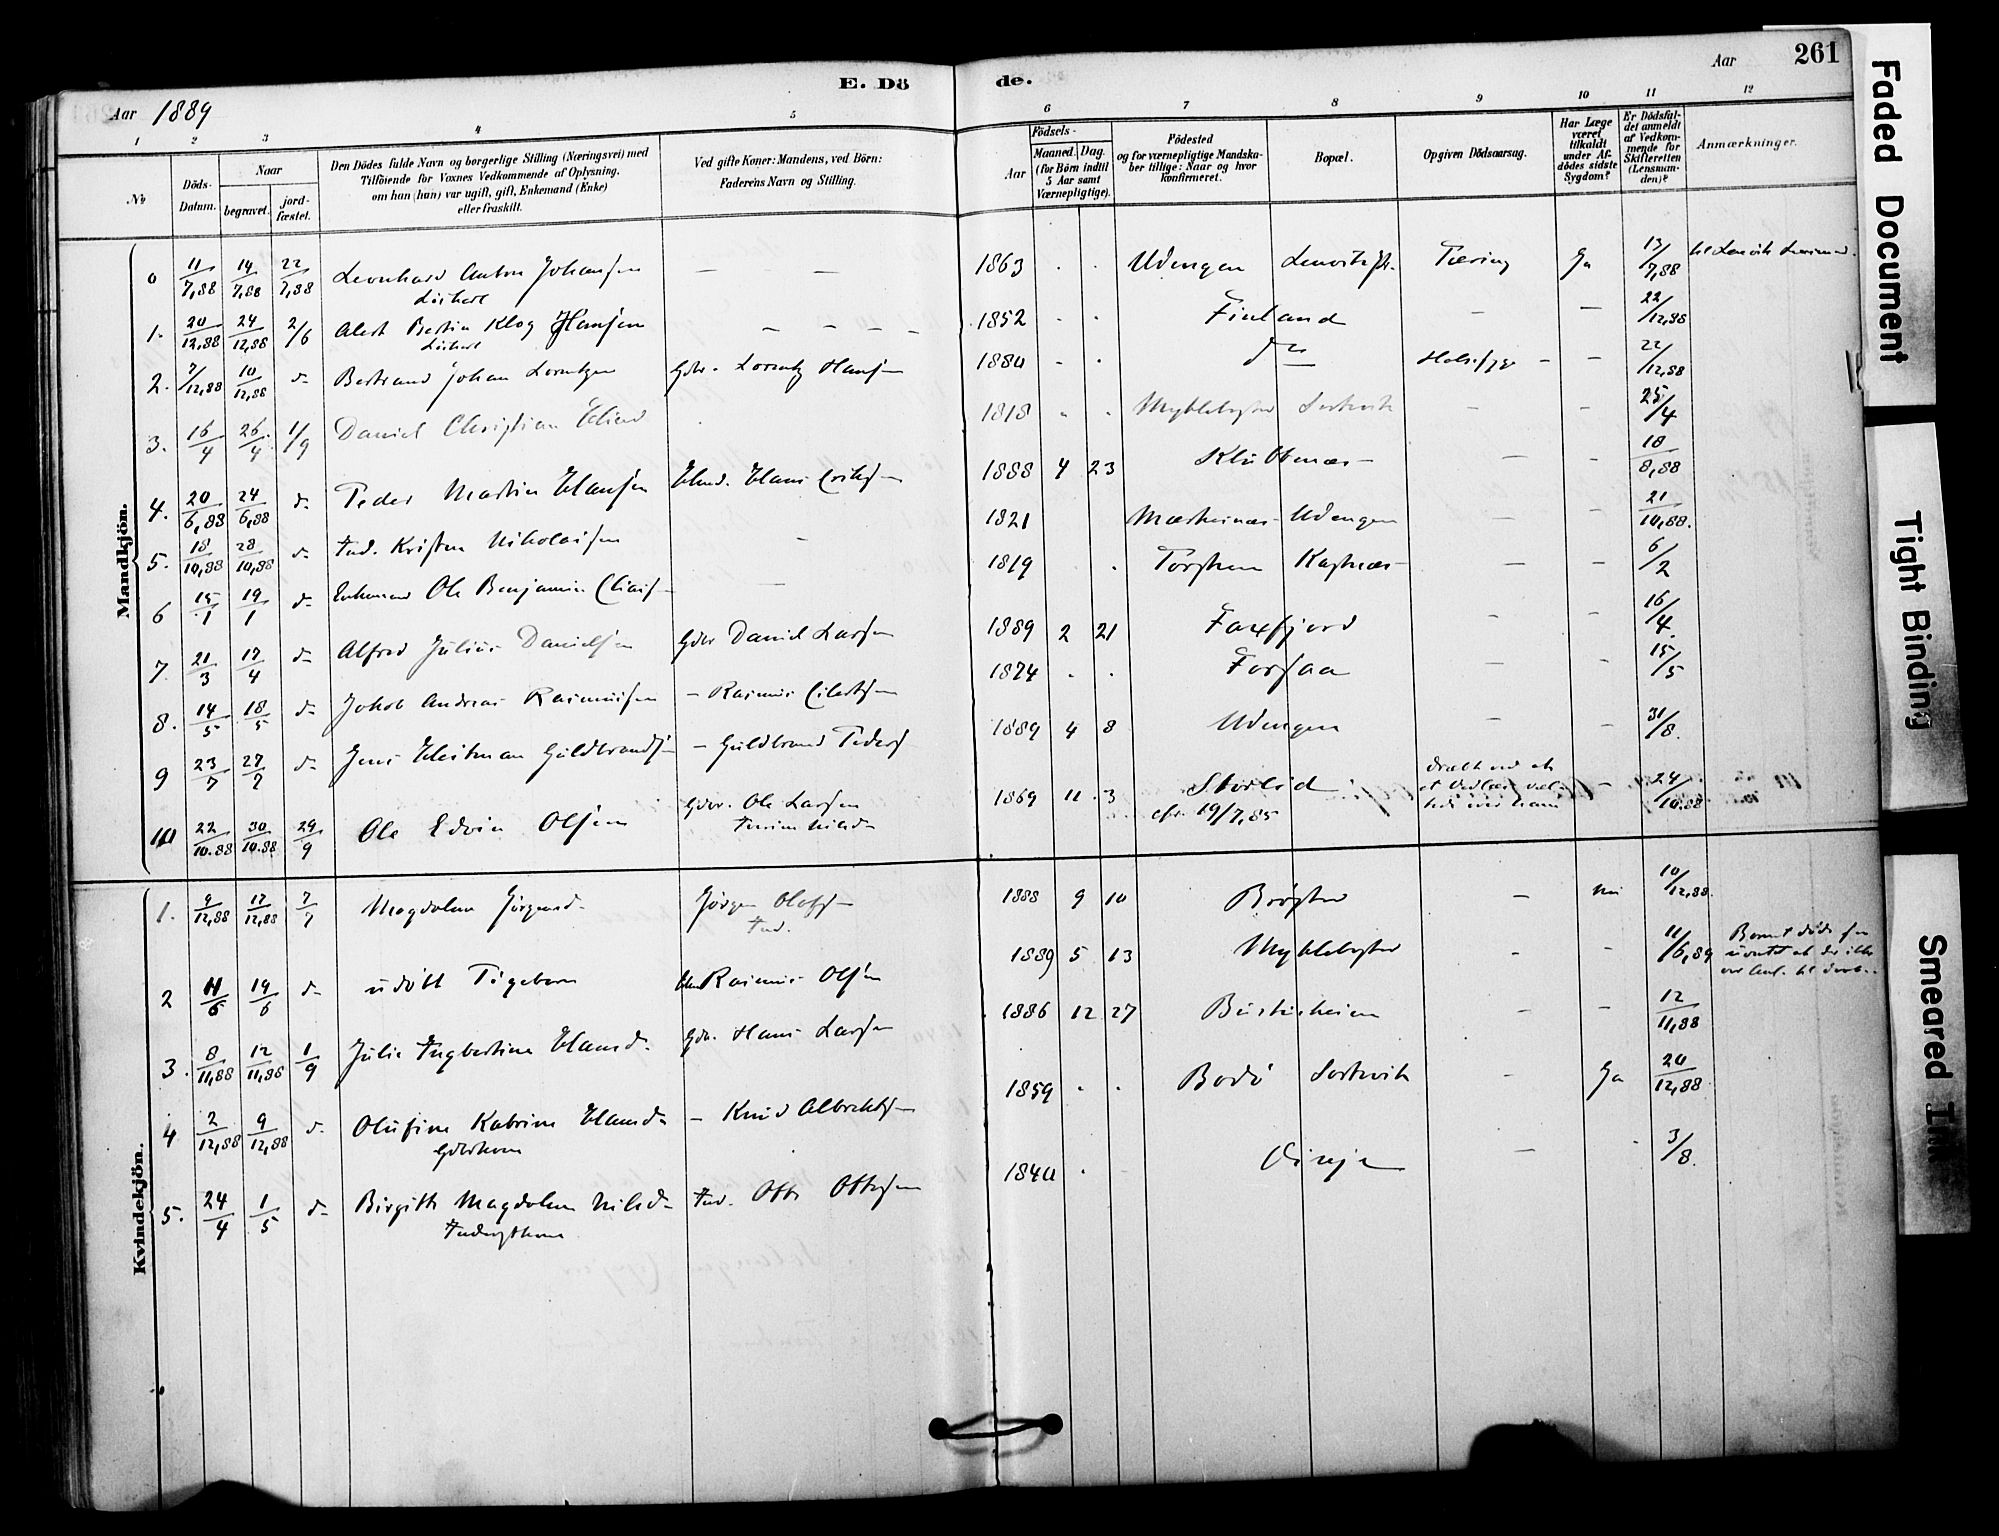 261
E. Dö de.
Aar 1889
Aar
1 2 3 4 5 6 7 8 9 10 11 12
No
Döds-Datum.
Naar
begravet.
jord-fæstet.
Den Dödes fulde Navn og borgerlige Stilling (Næringsvei) med
Tilföiende for Voxnes Vedkommende af Oplysning,
om han (hun) var ugift, gift, Enkemand (Enke)
eller fraskilt.
Ved gifte Koner: Mandens, ved Börn:
Faderens Navn og Stilling.
Födsels-
Aar
Maaned. Dag.
(for Börn indtil
5 Aar samt
Værnepligtige).
Födested
og for værnepligtige Mandska-
ber tillige: Naar og hvor
konfirmeret.
Bopæl.
Opgiven Dödsaarsag.
Har Læge
været
tilkaldt
under Af-
dödes sidste
Sygdom?
Er Dödsfal-
det anmeldt
af Vedkom-
mende for
Skifteretten
(Lensman-
den)?
Anmærkninger.
Mandkjön.
0 11/7,88 14/7,88 22/7,88 Leonhard Anton Johansen — — — 1863 . . Udengen Lenviks Tæring Ja 13/7,88 til Lenvik
1. 20/12,88 24/12,88 2/6 Bertin Klog Hansen — — — — 1852 . . Finland — — 22/12,88
2. 7/12,88 10/12,88 d- Bertrand Johan Lorntzen Gdbr. Lorentz Hansen 1880 - . do Halssyge — — 22/12,88
3. 16/4 26/4 1/9 Daniel Christian 1818 - . Myklebostad — — 25/4
4. 20/6,88 24/6,88 d- Peder Martin Hansen Hans 1888 4 23 — — 18/8,88
5. 18/10,88 28/10,88 d- Ind. Kristen Nikolaisen — 1821 Udengen — — 21/10,88.
6 15/1 19/1 d- Enkemand Ole Benjamin — 1819 . Kastnæs — — 6/2
7. 21/3 17/4 d- Alfred Julius Danielsen Gdbr Daniel Larsen 1889 2 21 Faxfjord — — 16/4.
8. 14/5 18/5 d- Jakob Andreas Rasmussen — Rasmus 1874 . . Forsaa — — 15/5
9 23/7 27/7 d- Jens Heitman Guldbrandsen — Guldbrand Peders 1889 4 8 Udengen — — 31/8.
10 22/10.88 30/10.88 29/9 Ole Edvin Olsen Gdbr. Ole Larsen 1869 11 3 Storlid — 24/10.88
19/7,85
Kvindekjön.
1. 9/12,88 17/12,88 7/7 Magdalena Jørgensd. Jørgen 1888 9 10 Brøstad — nei 10/12,88.
Ind.
2 11/6 19/6 d- udöbt Pigebarn Rasmus Olsen 1889 5 13 Myklebostad — - 11/6,89 Barnet døde
3. 8/11,88 12/11,88 1/9 Julie Ingbertine Hansd. Gdbr. Hans Larsen 1886 12 27 — — 12/11,88
4 2/12,88 9/12,88 d- Olufine Katrine Hansd. — Knud Albrektsen 1859 . . Bodö — Ja 20/12,88
5. 24/4 1/5 d- Birgitte Magdalena Nilsd. Ind. Otto Ottesen 1840 . — - 3/8.
Faded Document
Tight Binding
Smeared Ink